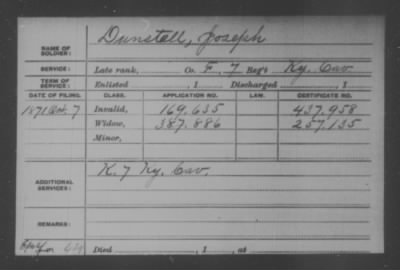 NAME OF SOLDIER: Dunstell, Joseph
SERVICE: Late rank, Co. F, 7 Reg't Ky. Cav.
TERM OF SERVICE: Enlisted , 1 Discharged , 1
DATE OF FILING. CLASS. APPLICATION NO. LAW. CERTIFICATE NO.
1871 Oct. 7 Invalid, 169.635 437.958
Widow, 387.886 257.135
Minor,
ADDITIONAL SERVICES: K. 7 Ky. Cav.
REMARKS:
Died , 1 , at